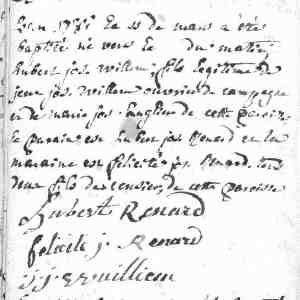 L'an 17 le 22 de mars a étée
baptisé né vers le du matin
hubert jos. Willem, fils legitime de
jean jos. Willem ouvrier de campagne
et de marie jos. de cette paroisse
le parain est hubert jos Renard et la
maraine est felicité jos. Renard tous
deux de cette paroisse
Hubert Renard
felicite j. Renard